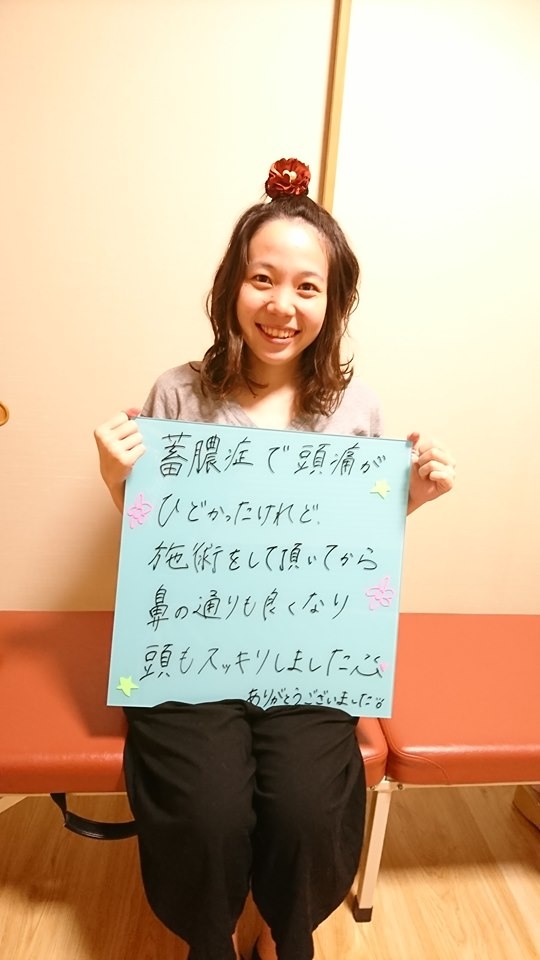 蓄膿症で頭痛が
ひどかったけれど、
施術をして頂いてから
鼻の通りも良くなり
頭もスッキリしました
ありがとうございました